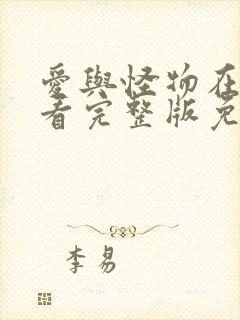 愛與怪物在
看完整版免
李易